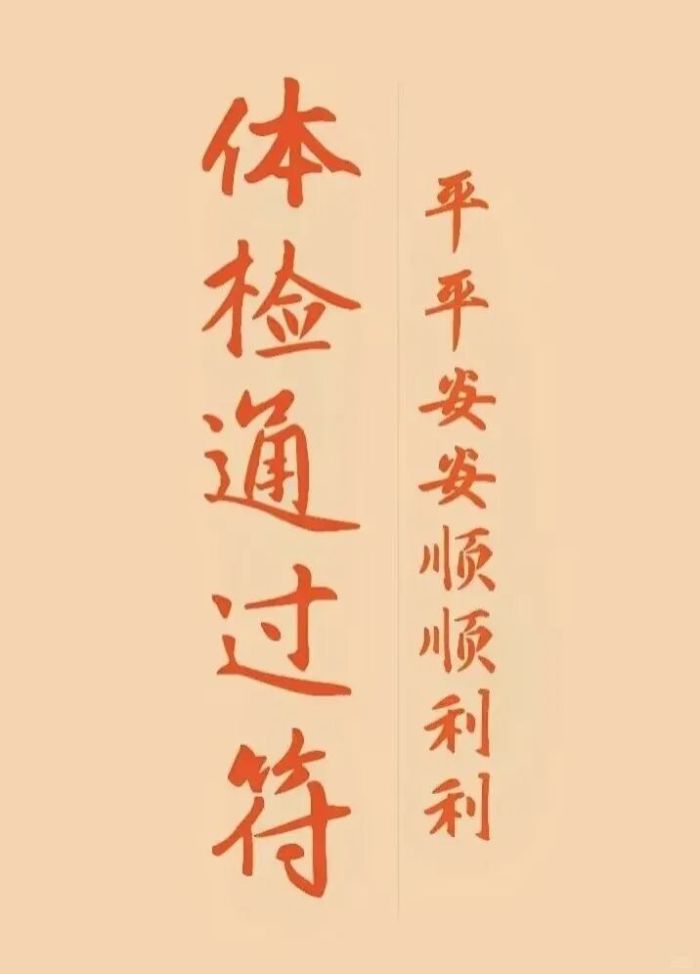 平平安安顺顺利利
体检通过符